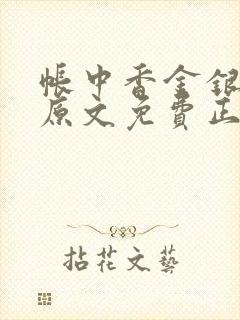 帳中香金銀
原文免費正
拈花文藝